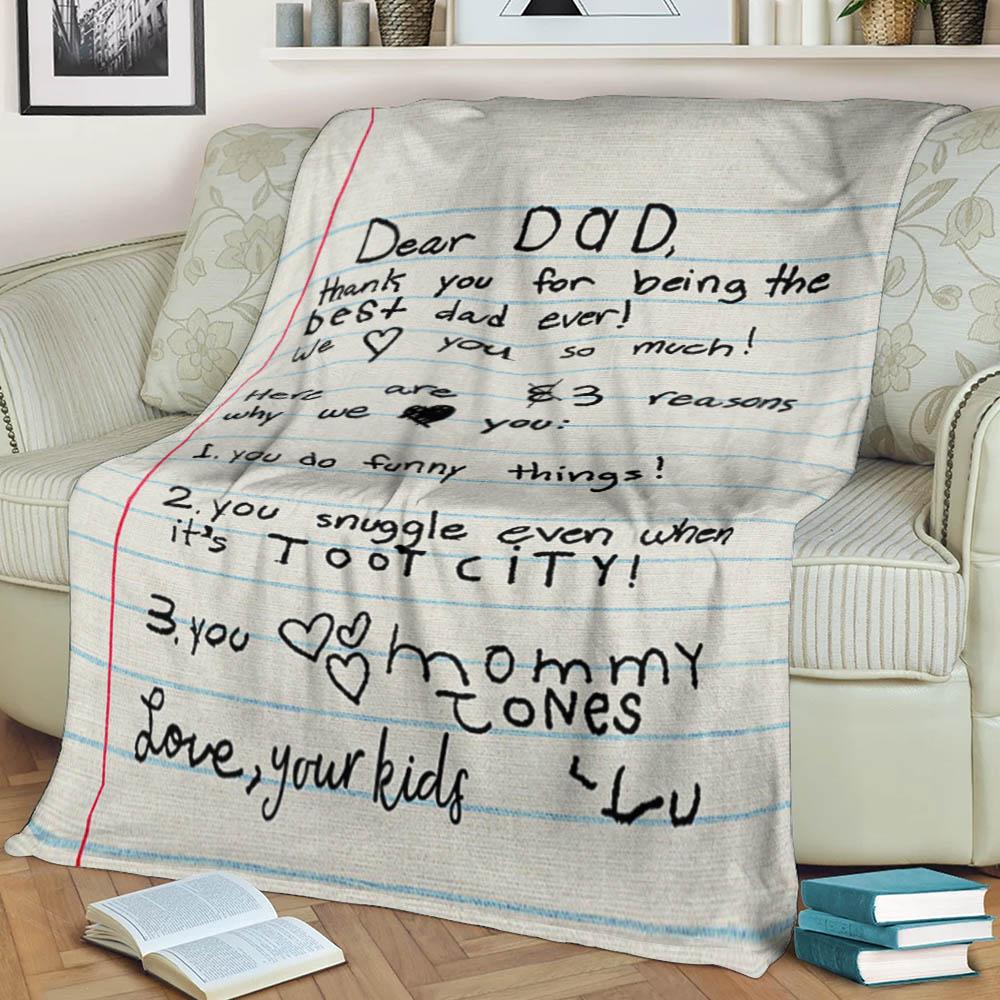 Dear DaD,
thank you for being the
best dad ever!
we ♡ you so much!
Here are 3 reasons
why we ♥ you:
1. you do funny things!
2. you snuggle even when
it's TOOT CiTY!
3. you ♡♡♡ mommy
TONES
Love, your kids
Lu